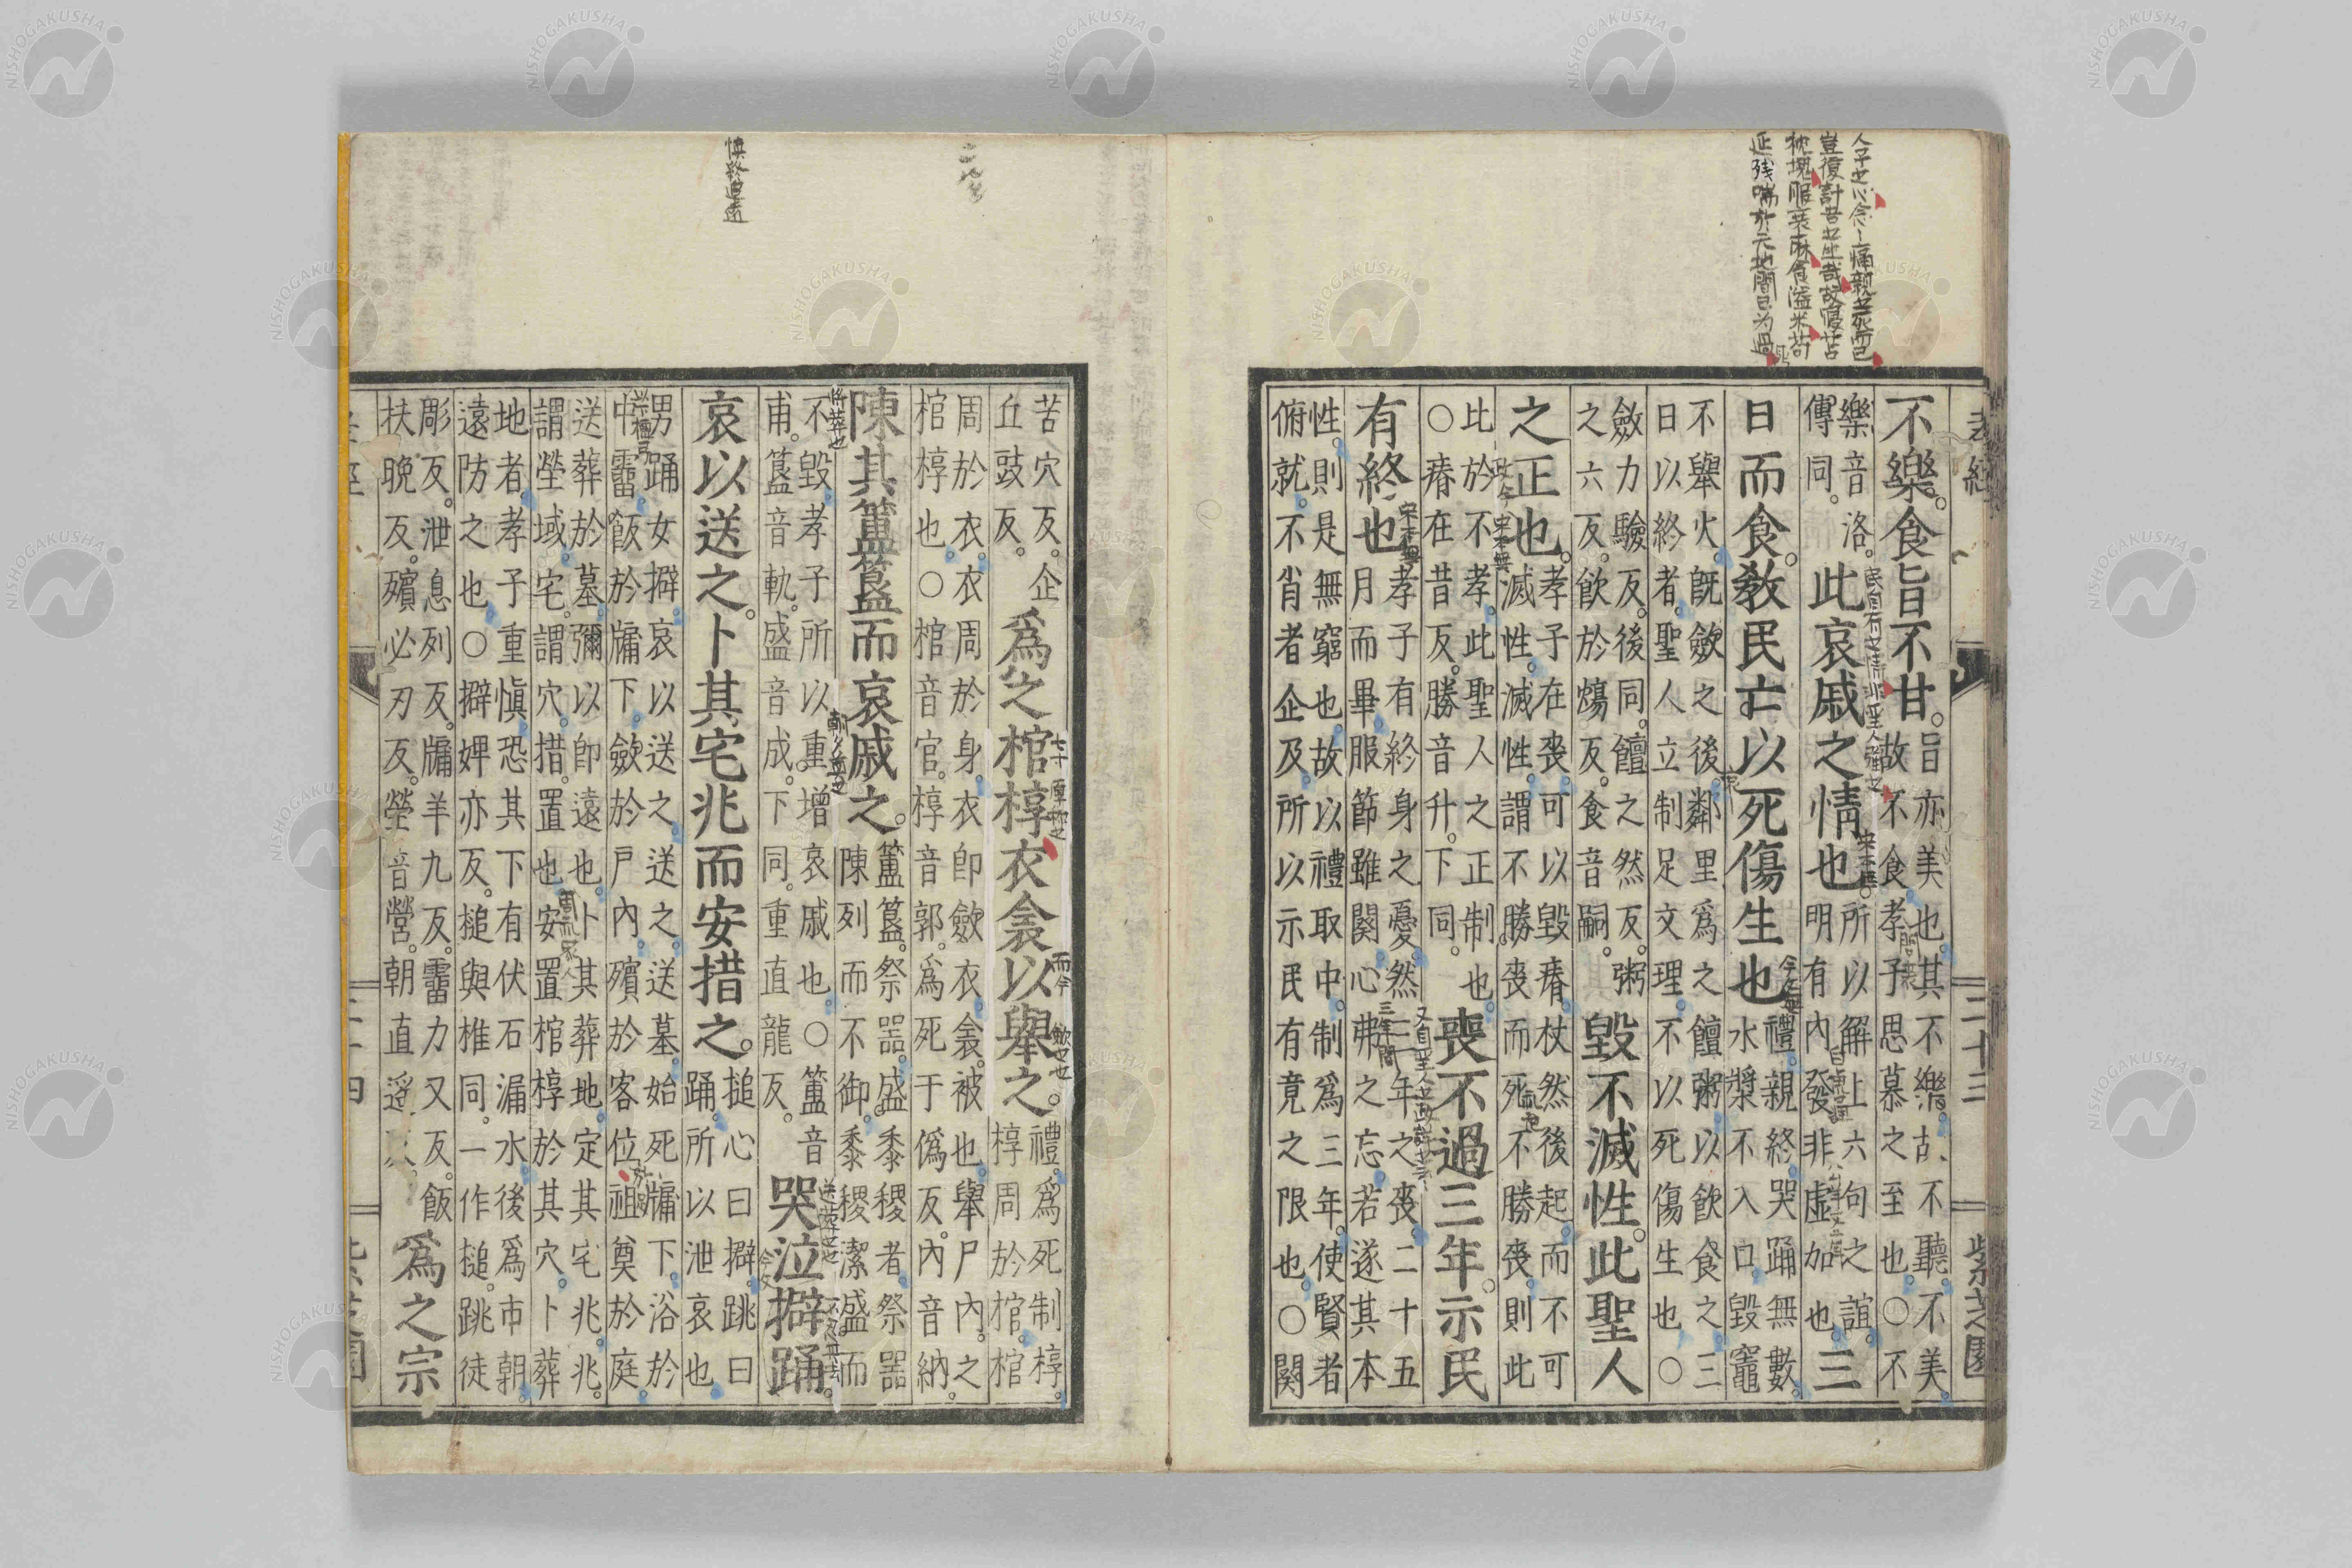 人子之心念〻痛親之死而已
豈復計吾之生哉故寢苫
枕塊服衰麻食溢米苟
延残喘於天地間已为過
孝經 二十三 紫芝園
不樂。食旨不甘。
旨亦美也。其不樂。故不聽。不美。
故不食。孝子思慕之至也。○不
樂音洛。
傳同。
此哀戚之情也
所以解上六句之誼。
明有內發非虛加也。
三
日而食。教民亡以死傷生也
禮。親終哭踊無數。
水漿不入口。毀竈
不舉火。既斂之後。鄰里爲之饘粥。以飲食之。三
日以終者。聖人立制足文理。不以死傷生也○
斂力驗反。後同。饘之然反。粥
之六反。飲於煬反。食音嗣。
毀不滅性。此聖人
之正也。
孝子在喪。可以毀瘠。杖然後起。而不可
滅性。滅性。謂不勝喪而死。不勝喪。則此
比於不孝。此聖人之正制也。
○瘠在昔反。勝音升。下同。
喪不過三年。示民
有終也
孝子有終身之憂。然三年之喪。二十五
月而畢。服節雖闋。心弗之忘。若遂其本
性。則是無窮也。故以禮取中。制爲三年。使賢者
俯就。不肖者企及。所以示民有竟之限也。○闋
愼終追遠
苦穴反。企
丘豉反。
爲之棺椁衣衾以舉之。
禮。爲死制椁。
椁周於棺。棺
周於衣。衣周於身。衣卽斂衣。衾。被也。舉尸內。之
棺椁也。○棺音官。椁音郭。爲死于僞反。內音納。
陳其簠簋而哀戚之。
簠簋。祭器。盛黍稷者。祭器
陳列而不御。黍稷潔盛。而
不毀。孝子所以重增哀戚也。○簠音
甫。簋音軌。盛音成。下同。重直龍反。
哭泣擗踊。
哀以送之。卜其宅兆而安措之。
搥心曰擗。跳曰
踊。所以泄哀也。
男踊女擗。哀以送之。送之。送墓。始死牖下。浴於
中霤。飯於牖下。斂於戶內。殯於客位。祖奠於庭。
送葬於墓。彌以卽遠也。卜其葬地。定其宅兆。兆。
謂塋域。宅。謂穴。措。置也。安置棺椁於其穴。卜葬
地者。孝子重愼。恐其下有伏石漏水。後爲市朝。
遠防之也。○擗婢亦反。搥與椎同。一作搥。跳徒
彫反。泄息列反。牖羊九反。霤力又反。飯
扶晚反。殯必刃反。塋音營。朝直遙反。
爲之宗